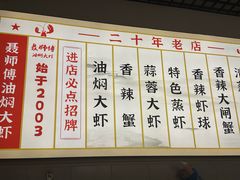 二十年老店
聂师傅油焖大虾
聂师傅
始于2003
进店必点招牌
油焖大虾
香辣蟹
蒜蓉大虾
特色蒸虾
香辣虾球
香辣大闸蟹